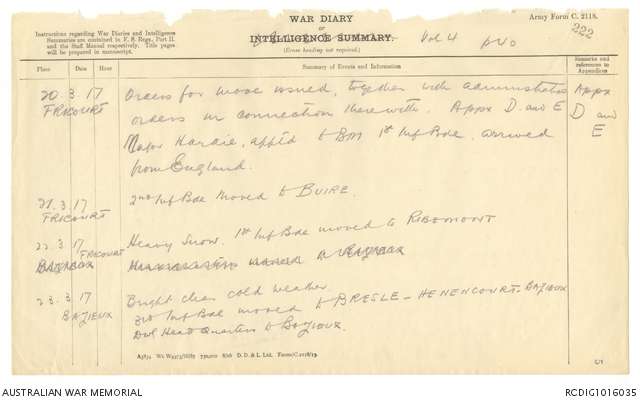 WAR DIARY
or
INTELLIGENCE SUMMARY.
(Erase heading not required.)
Army Form C. 2118.
222
Vol 4
Instructions regarding War Diaries and Intelligence
Summaries are contained in F. S. Regs., Part II.
and the Staff Manual respectively. Title pages
will be prepared in manuscript.
Place Date Hour Summary of Events and Information Remarks and references to Appendices
20 3 17 Orders for move issued, together with administration Appx
FRICOURT orders in connection therewith. Appx D and E D and
Major Hardie, app'td to BM 1st Inf Bde, arrived E
from England.
21 3 17 2nd Inf Bde moved to BUIRE.
FRICOURT
22 3 17 Heavy Snow. 1st Inf Bde moved to RIBEMONT
FRICOURT
BAZIEUX
23 3 17 Bright clear cold weather
BAZIEUX 3rd Inf Bde moved to BRESLE - HENENCOURT - BAZIEUX
Divl Head Quarters to Bazieux.
D. D. & L. Ltd.
AUSTRALIAN WAR MEMORIAL
RCDIG1016035